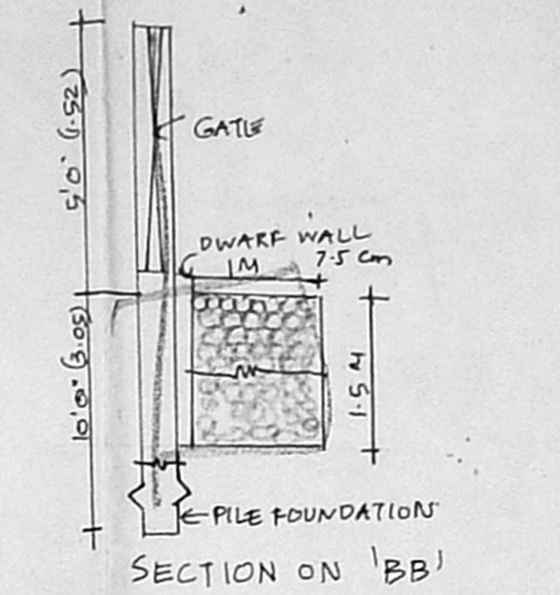 5'0" (1.52)
GATE
DWARF WALL
1M
7.5 cm
10'0" (3.05)
1.5 M
PILE FOUNDATION
SECTION ON 'BB'